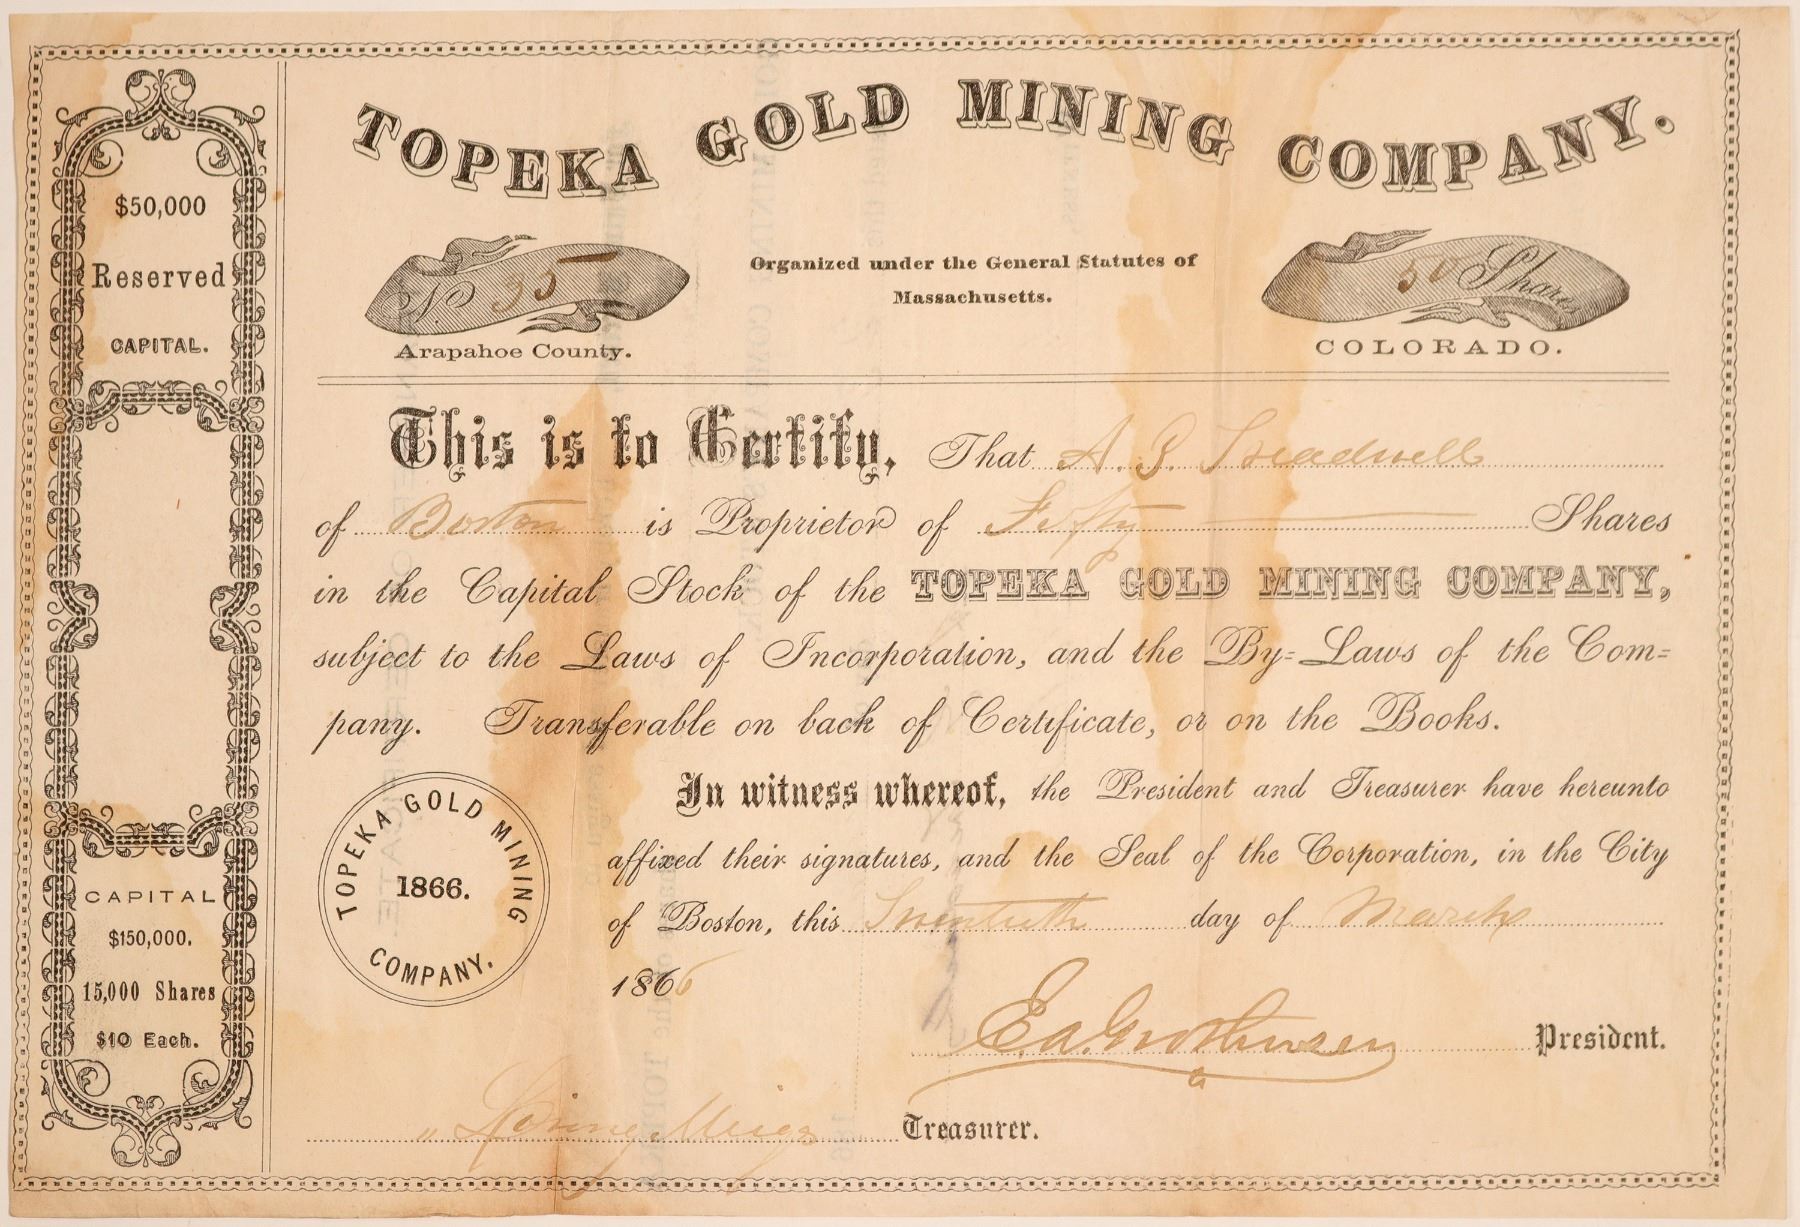 TOPEKA GOLD MINING COMPANY.
$50,000
Reserved
CAPITAL.
No 35
Arapahoe County.
Organized under the General Statutes of
Massachusetts.
50 Shares
COLORADO.
This is to Certify, That A. Treadwell
of Boston is Proprietor of Fifty Shares
in the Capital Stock of the TOPEKA GOLD MINING COMPANY,
subject to the Laws of Incorporation, and the By=Laws of the Com=
pany. Transferable on back of Certificate, or on the Books.
In witness whereof, the President and Treasurer have hereunto
affixed their signatures, and the Seal of the Corporation, in the City
of Boston, this Twentieth day of March
1866
TOPEKA GOLD MINING COMPANY.
1866.
CAPITAL
$150,000.
15,000 Shares
$10 Each.
E. A. President.
Loring Meigs Treasurer.